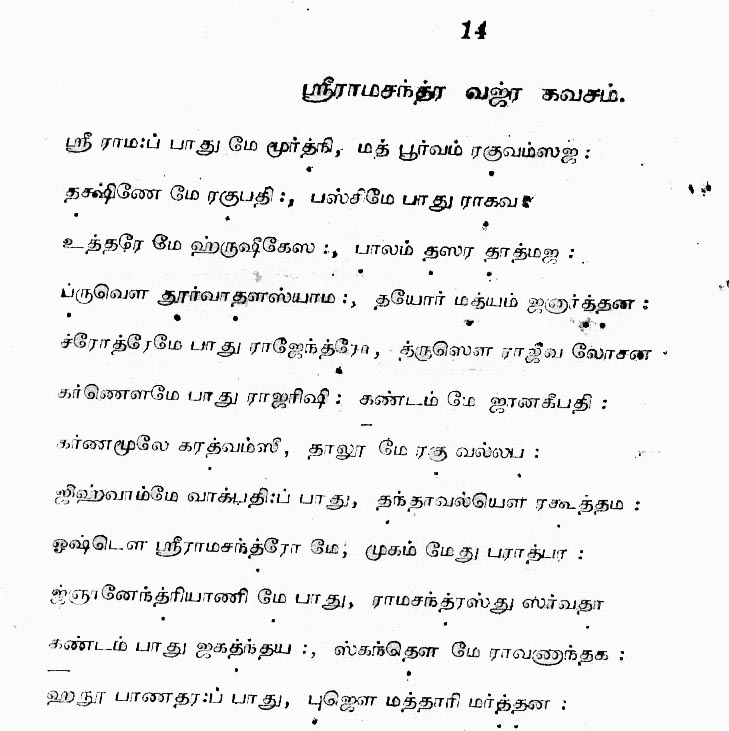 14
ஸ்ரீராமசந்த்ர வஜ்ர கவசம்.
ஸ்ரீ ராம:ப் பாது மே மூர்த்நி, மத் பூர்வம் ரகுவம்ஸஜ :
தக்ஷிணே மே ரகுபதி :, பஸ்சிமே பாது ராகவ:
உத்தரே மே ஹ்ருஷீகேஸ :, பாலம் தஸர தாத்மஜ :
ப்ருவௌ தூர்வாதளஸ்யாம :, தயோர் மத்யம் ஜனார்த்தன :
ச்ரோத்ரேமே பாது ராஜேந்த்ரோ, த்ருஸௌ ராஜீவ லோசன
கர்ணௌமே பாது ராஜரிஷி : கண்டம் மே ஜானகீபதி :
கர்ணமூலே கரத்வம்ஸீ, தாலூ மே ரகு வல்லப :
ஜிஹ்வாம்மே வாக்பதி:ப் பாது, தந்தாவல்யௌ ரகூத்தம :
ஓஷ்டௌ ஸ்ரீராமசந்த்ரோ மே, முகம் மேது பராத்பர :
ஜ்ஞானேந்த்ரியாணி மே பாது, ராமசந்த்ரஸ்து ஸர்வதா
கண்டம் பாது ஜகத்ந்தய :, ஸ்கந்தௌ மே ராவணாந்தக :
ஹநூ பாணதர:ப் பாது, புஜௌ மத்தாரி மர்த்தன :